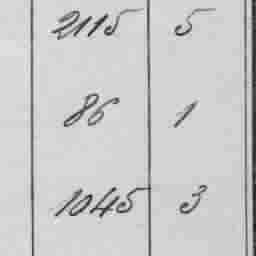 2115 5
86 1
1045 3